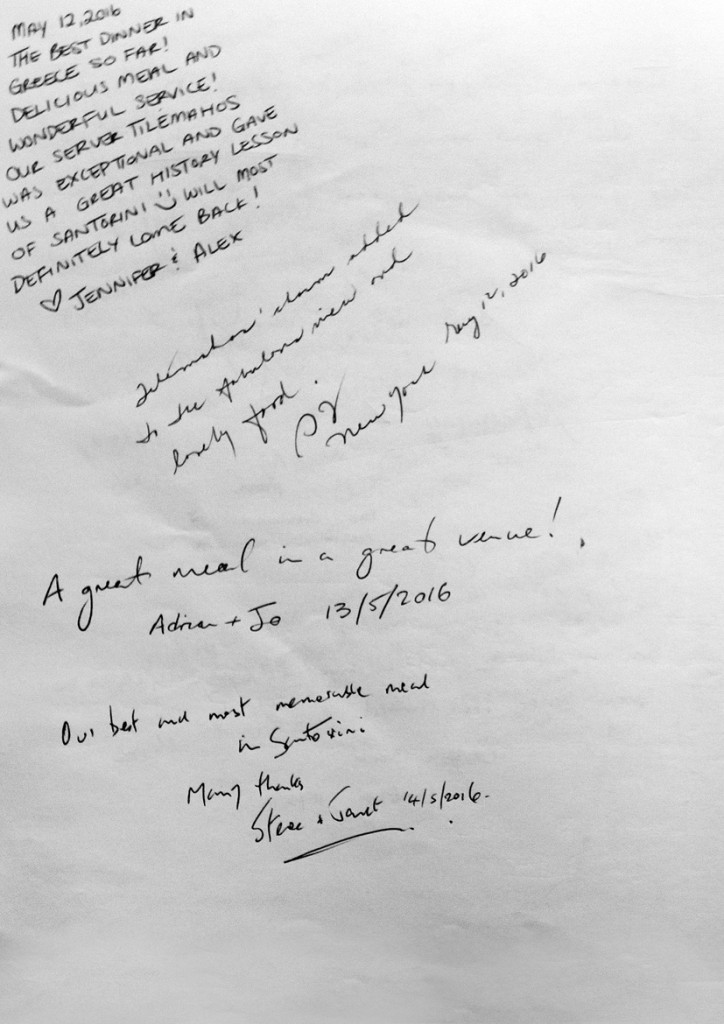 MAY 12, 2016
THE BEST DINNER IN
GREECE SO FAR!
DELICIOUS MEAL AND
WONDERFUL SERVICE!
OUR SERVER TILÉMAHOS
WAS EXCEPTIONAL AND GAVE
US A GREAT HISTORY LESSON
OF SANTORINI :) WILL MOST
DEFINITELY COME BACK!
♡ JENNIFER & ALEX
Telemahos' charm added
to the fabulous view and
lovely food.
New York May 12, 2016
A great meal in a great venue!
Adrian + Jo 13/5/2016
Our best and most memorable meal
in Santorini
Many thanks
Steve + Janet 14/5/2016.